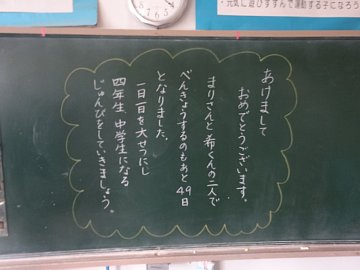 ・元気に遊びすすんで運動する子になろう
あけまして
おめでとうございます。
まりさんと希くんの二人で
べんきょうするのもあと49日
となりました。
一日一日を大せつにし
四年生 中学生になる
じゅんびをしていきましょう。